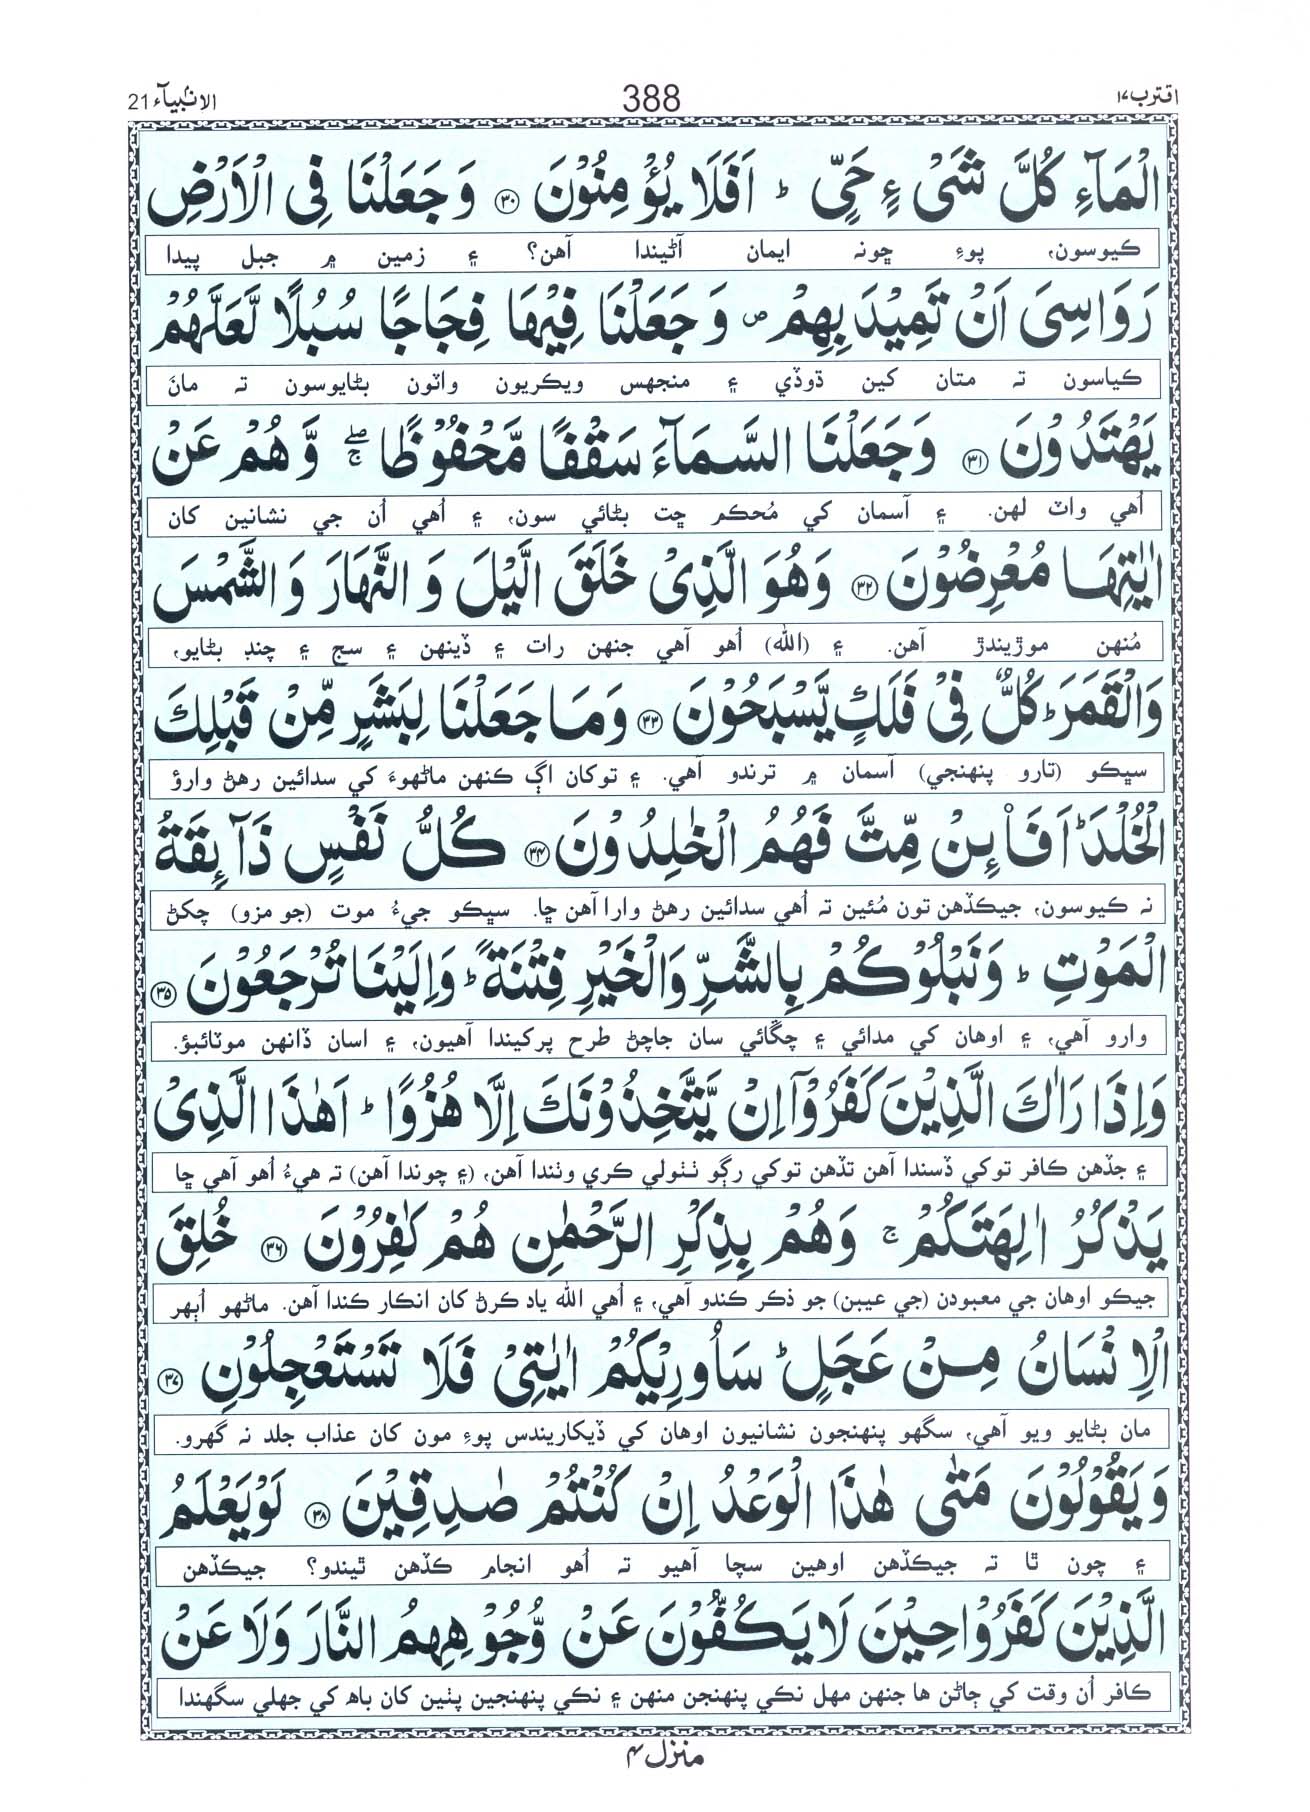 اقترب ١٧
388
الانبیآء 21
الْمَآءِ كُلَّ شَیْءٍ حَیٍّ ؕ اَفَلَا یُؤْمِنُوْنَ ﴿۳۰﴾ وَ جَعَلْنَا فِی الْاَرْضِ
ڪيوسون، پوءِ ڇونہ ايمان آڻيندا آهن؟ ۽ زمين ۾ جبل پيدا
رَوَاسِیَ اَنْ تَمِیْدَ بِهِمْ ۪ وَ جَعَلْنَا فِیْهَا فِجَاجًا سُبُلًا لَّعَلَّهُمْ
ڪياسون تہ متان کين ڌوڏي ۽ منجهس ويڪريون واٽون بڻايوسون تہ مان
یَهْتَدُوْنَ ﴿۳۱﴾ وَ جَعَلْنَا السَّمَآءَ سَقْفًا مَّحْفُوْظًا ۖۚ وَّ هُمْ عَنْ
اُهي واٽ لهن. ۽ آسمان کي مُحڪم ڇت بڻائي سون، ۽ اُهي اُن جي نشانين کان
اٰیٰتِهَا مُعْرِضُوْنَ ﴿۳۲﴾ وَ هُوَ الَّذِیْ خَلَقَ الَّیْلَ وَ النَّهَارَ وَ الشَّمْسَ
مُنهن موڙيندڙ آهن. ۽ (الله) اُهو آهي جنهن رات ۽ ڏينهن ۽ سج ۽ چنڊ بڻايو،
وَ الْقَمَرَ ؕ كُلٌّ فِیْ فَلَكٍ یَّسْبَحُوْنَ ﴿۳۳﴾ وَ مَا جَعَلْنَا لِبَشَرٍ مِّنْ قَبْلِكَ
سڀڪو (تارو پنهنجي) آسمان ۾ ترندو آهي. ۽ توکان اڳ ڪنهن ماڻهوءَ کي سدائين رهڻ وارؤ
الْخُلْدَ ؕ اَفَا۠ىِٕنْ مِّتَّ فَهُمُ الْخٰلِدُوْنَ ﴿۳۴﴾ كُلُّ نَفْسٍ ذَآىِٕقَةُ
نہ ڪيوسون، جيڪڏهن تون مُئين تہ اُهي سدائين رهڻ وارا آهن ڇا. سڀڪو جيءُ موت (جو مزو) چکڻ
الْمَوْتِ ؕ وَ نَبْلُوْكُمْ بِالشَّرِّ وَ الْخَیْرِ فِتْنَةً ؕ وَ اِلَیْنَا تُرْجَعُوْنَ ﴿۳۵﴾
وارو آهي، ۽ اوهان کي مدائي ۽ چڱائي سان جاچڻ طرح پرکيندا آهيون، ۽ اسان ڏانهن موٽائبؤ.
وَ اِذَا رَاٰكَ الَّذِیْنَ كَفَرُوْۤا اِنْ یَّتَّخِذُوْنَكَ اِلَّا هُزُوًا ؕ اَهٰذَا الَّذِیْ
۽ جڏهن ڪافر توکي ڏسندا آهن تڏهن توکي رڳو ٺٺولي ڪري وٺندا آهن، (۽ چوندا آهن) تہ هيءُ اُهو آهي ڇا
یَذْكُرُ اٰلِهَتَكُمْ ۚ وَ هُمْ بِذِكْرِ الرَّحْمٰنِ هُمْ كٰفِرُوْنَ ﴿۳۶﴾ خُلِقَ
جيڪو اوهان جي معبودن (جي عيبن) جو ذڪر ڪندو آهي، ۽ اُهي الله ياد ڪرڻ کان انڪار ڪندا آهن. ماڻهو اُٻهر
الْاِنْسَانُ مِنْ عَجَلٍ ؕ سَاُورِیْكُمْ اٰیٰتِیْ فَلَا تَسْتَعْجِلُوْنِ ﴿۳۷﴾
مان بڻايو ويو آهي، سگهو پنهنجون نشانيون اوهان کي ڏيکاريندس پوءِ مون کان عذاب جلد نہ گهرو.
وَ یَقُوْلُوْنَ مَتٰی هٰذَا الْوَعْدُ اِنْ كُنْتُمْ صٰدِقِیْنَ ﴿۳۸﴾ لَوْ یَعْلَمُ
۽ چون ٿا تہ جيڪڏهن اوهين سچا آهيو تہ اُهو انجام ڪڏهن ٿيندو؟ جيڪڏهن
الَّذِیْنَ كَفَرُوْا حِیْنَ لَا یَكُفُّوْنَ عَنْ وُّجُوْهِهِمُ النَّارَ وَ لَا عَنْ
ڪافر اُن وقت کي ڄاڻن ها جنهن مهل نڪي پنهنجن منهن ۽ نڪي پنهنجين پٺين کان باھ کي جهلي سگهندا
منزل ۴